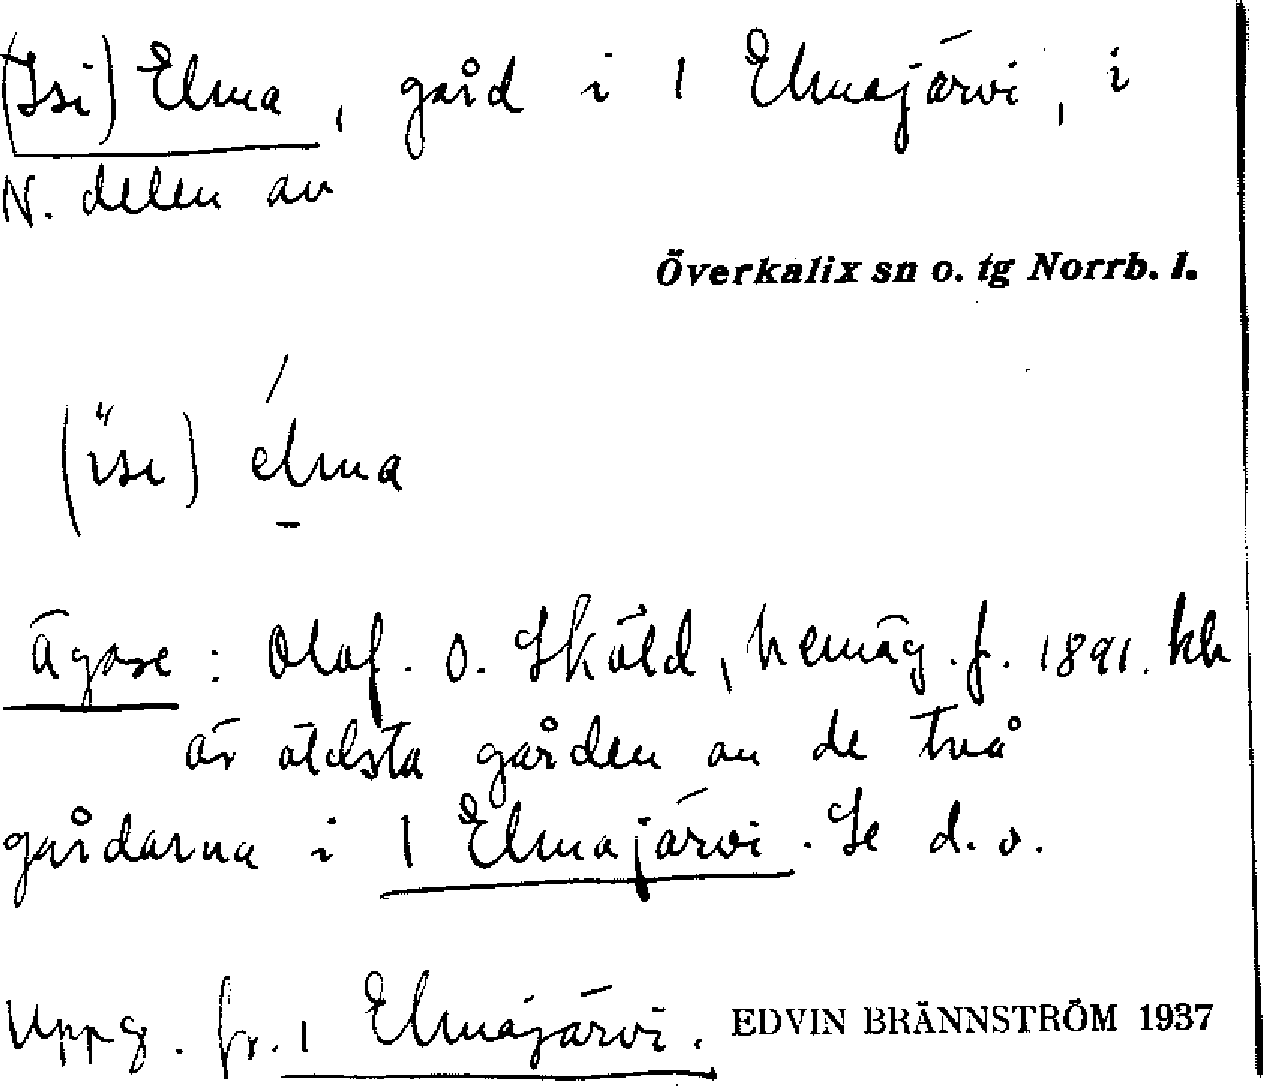 (Isi) Elma, gård i 1 Elmajärvi, i
N. delen av
Överkalix sn o. tg Norrb. l.
(ïsi) élma
Ägare: Olof. O. Sköld, hemäg. f. 1891.
är äldsta gården av de två
gårdarna i 1 Elmajärvi. Se d. o.
Uppg. fr. 1 Elmajärvi. EDVIN BRÄNNSTRÖM 1937